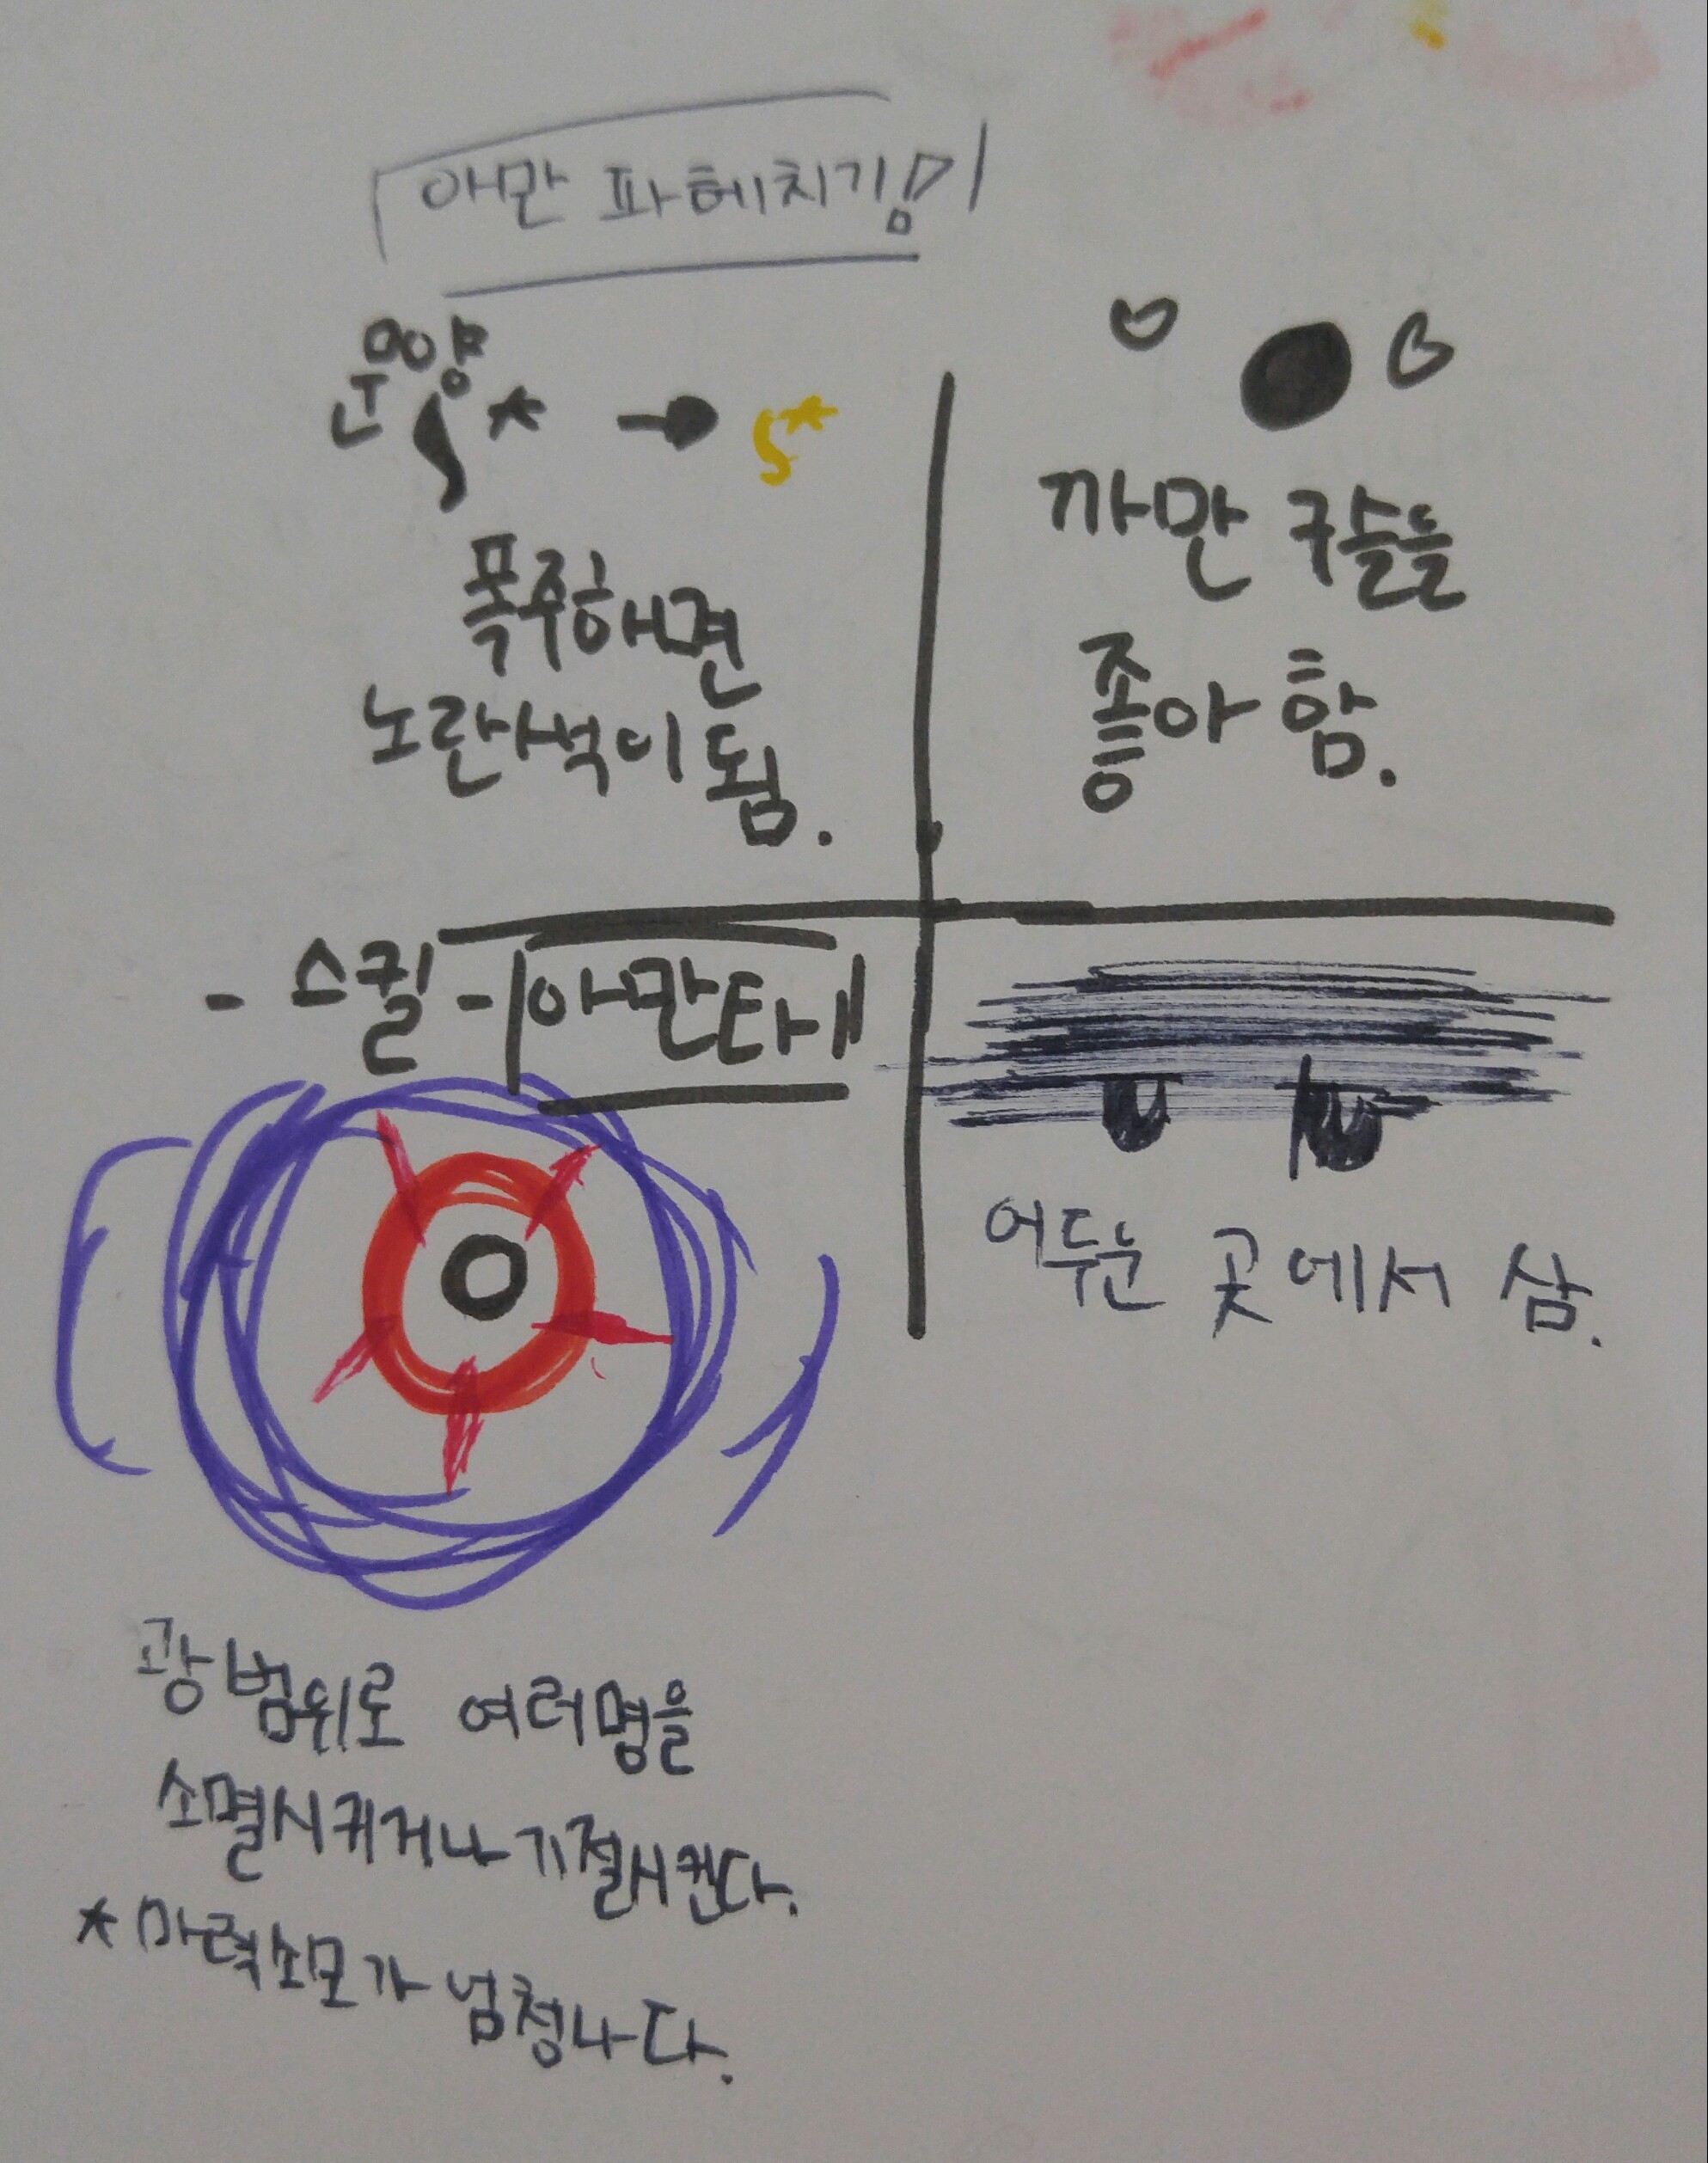 아만 파헤치기!
문양
폭주해면
노란색이 됨.
까만 구슬을
좋아 함.
- 스킬 - 아만타네
어두운 곳에서 삼.
광범위로 여러명을
소멸시키거나 기절시킨다.
* 마력소모가 넘청나다.